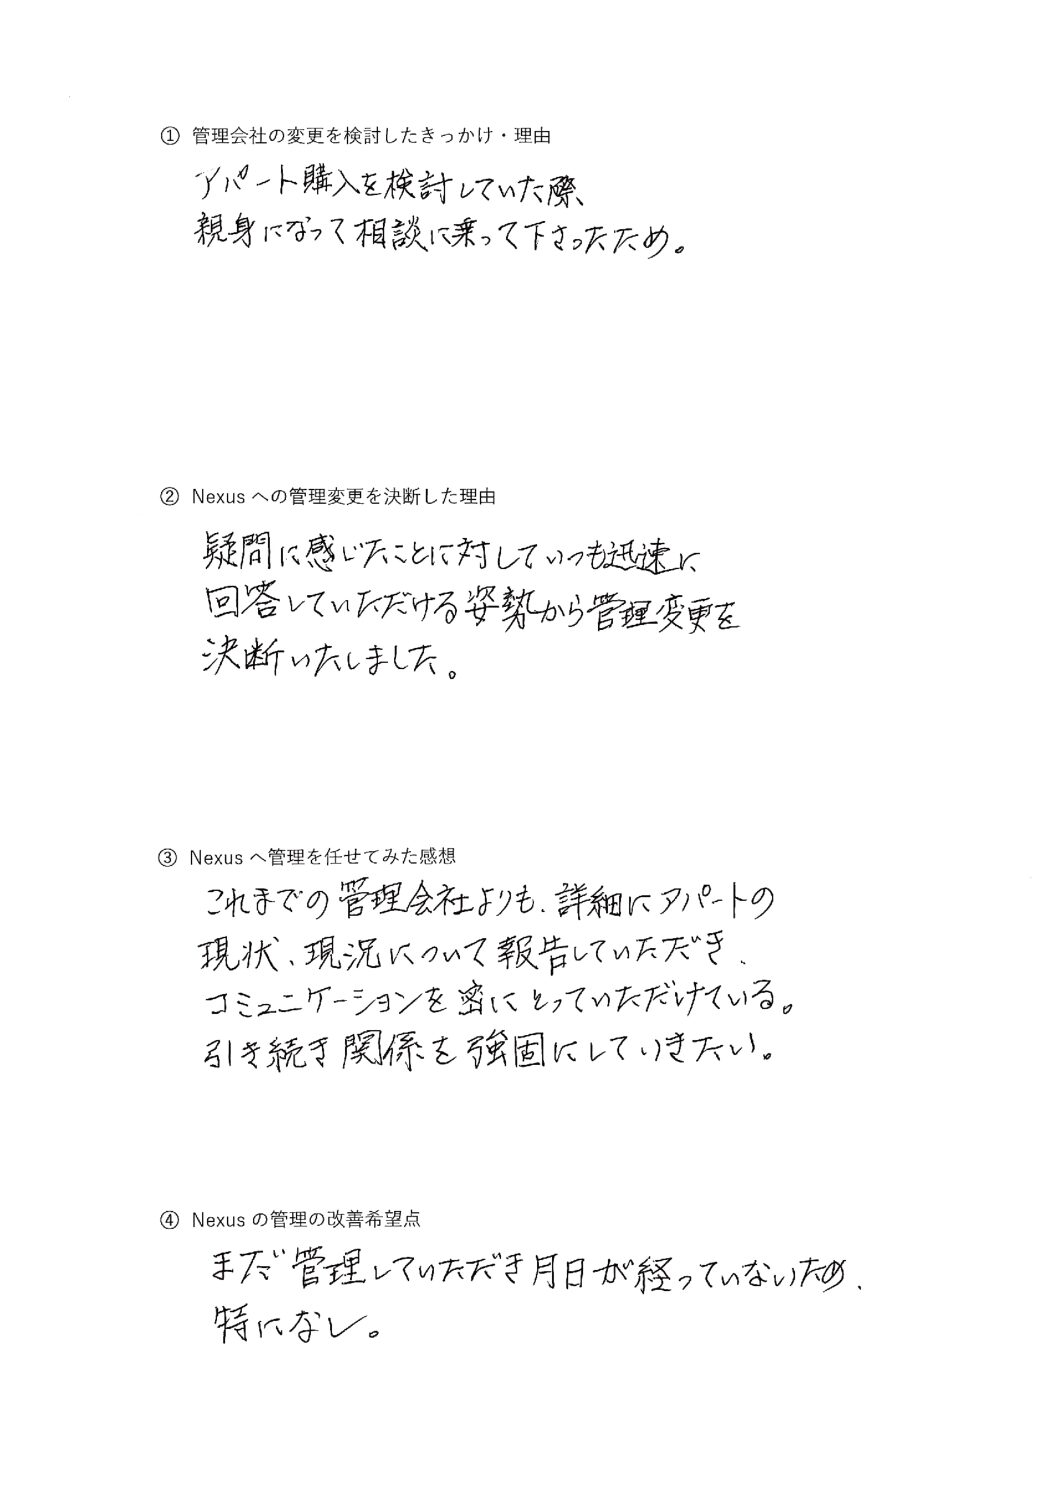 ① 管理会社の変更を検討したきっかけ・理由
アパート購入を検討していた際、
親身になって相談に乗って下さったため。
② Nexus への管理変更を決断した理由
疑問に感じたことに対していつも迅速に
回答していただける姿勢から管理変更を
決断いたしました。
③ Nexus へ管理を任せてみた感想
これまでの管理会社よりも、詳細にアパートの
現状、現況について報告していただき、
コミュニケーションを密にとっていただけている。
引き続き関係を強固にしていきたい。
④ Nexus の管理の改善希望点
まだ管理していただき月日が経っていないため、
特になし。